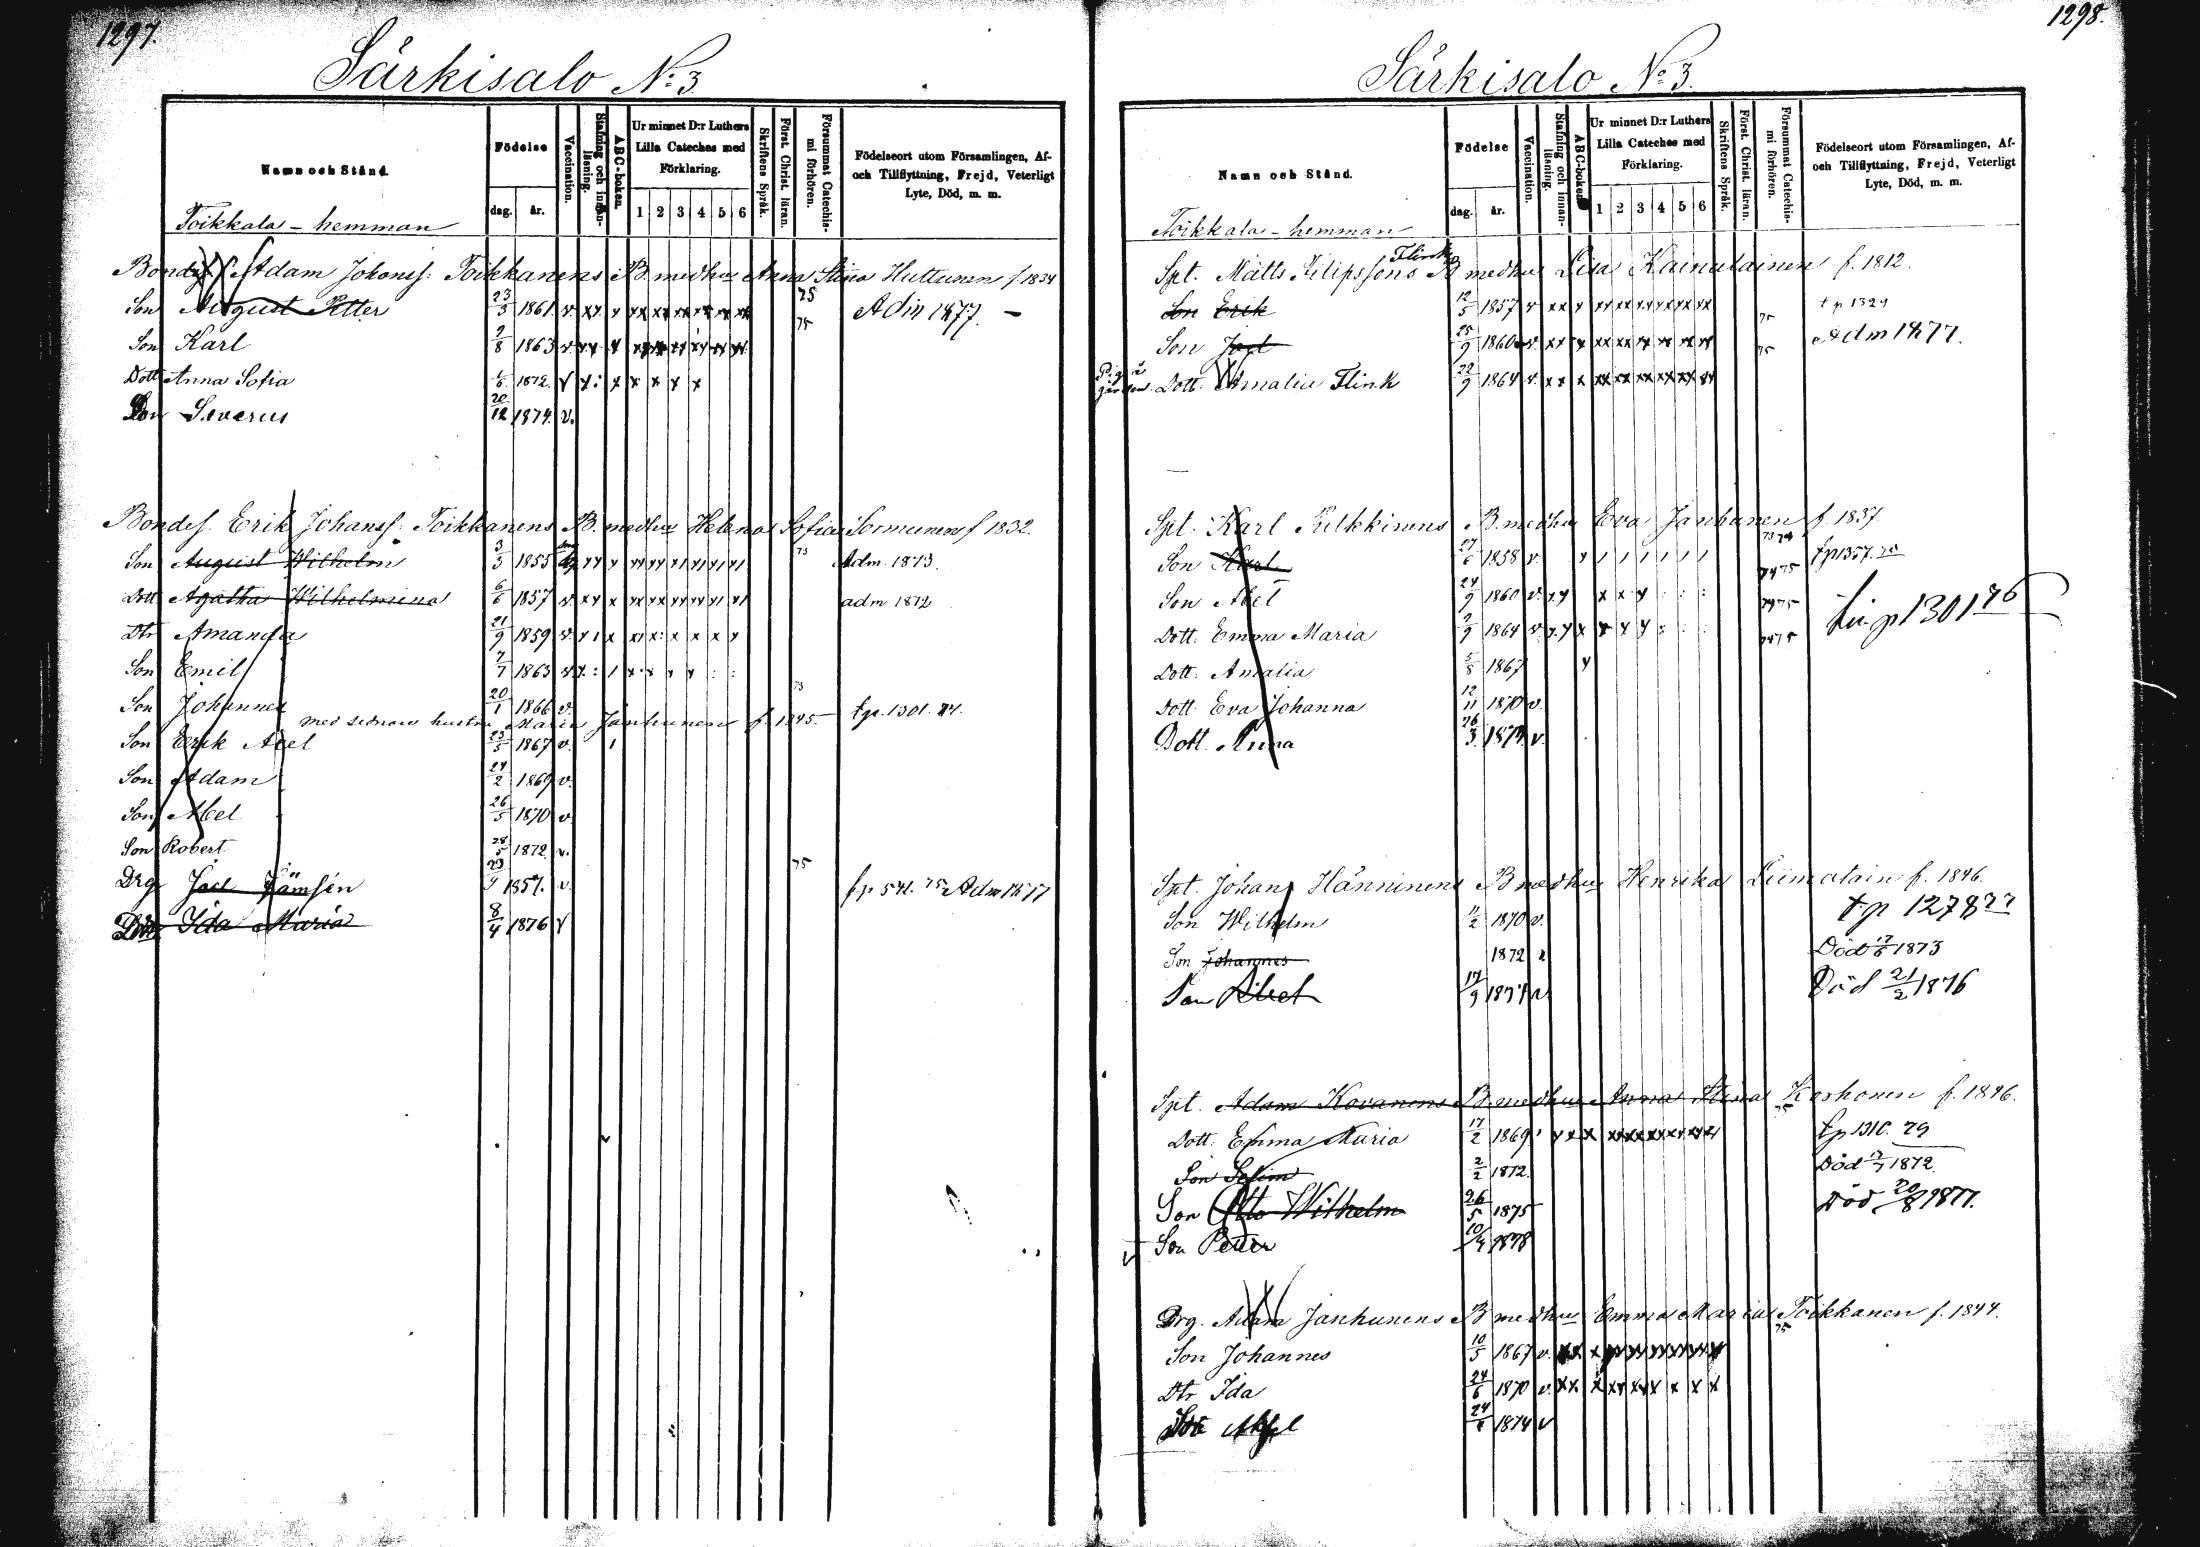 1297.
Särkisalo N:o 3
Namn och Stånd.
Födelse
dag. år.
Vaccination.
Stafning och innan-läsning.
ABC-boken.
Ur minnet D:r Luthers Lilla Cateches med Förklaring.
1 2 3 4 5 6
Skriftens Språk.
Först. Christ. läran.
Försummat Catechis-mi förhören.
Födelseort utom Församlingen, Af- och Tillflyttning, Frejd, Veterligt Lyte, Död, m. m.
Toikkala - hemman
Adam Johanss: Toikkanens B. med hus Anna Stina Huttunen f. 1834
Son August Petter 23/3 1861 v 75 Adm 1877.
Son Karl 9/8 1863 v 75
Dott Anna Sofia 1872 v
Son Severus 20/12 1874 v.
Bondes. Erik Johanss: Toikkanens B. med hus Helena Sofia Sormunen f 1832.
Son August Wilhelm 3/3 1855 73 Adm. 1873.
Dott Agatha Wilhelmina 6/6 1857 v adm 1872
Dtr Amanda 21/9 1859 v
Son Emil 7/7 1863 v
Son Johannes 20/1 1866 v. 73 tp. 1301. 74.
med sednare hustru Maria Janhunen f. 1845.
Son Erik Axel 23/5 1867 v.
Son Adam 24/2 1869 v.
Son Abel 26/5 1870 v
Son Robert 28/5 1872 v.
Drg Joel Jämsén 1857. v. 75 fp 541. 75 Adm 1877
Ida Maria 8/4 1876 v
1298.
Särkisalo N:o 3.
Namn och Stånd.
Födelse
dag. år.
Vaccination.
Stafning och innan-läsning.
ABC-boken
Ur minnet D:r Luthers Lilla Cateches med Förklaring.
1 2 3 4 5 6
Skriftens Språk.
Först. Christ. läran.
Försummat Catechis-mi förhören.
Födelseort utom Församlingen, Af- och Tillflyttning, Frejd, Veterligt Lyte, Död, m. m.
Toikkala - hemman
Flink
Spt. Matts Filipssons B med hus Lisa Kainulainen f. 1812.
Son Erik 12/5 1857 v
Son Joel 25/9 1860 v. 75 Adm 1877.
Dott. Amalia Flink 22/9 1864 v. 75
Spt. Karl Pulkkinens B. med hus Eva Janhunen f. 1837.
Son Karl 27/6 1858 v. tp 1357.
Son Abel 24/9 1860 v. 7475
Dott. Emma Maria 1864 v 7475 tp 1301 76
Dott. Amalia 5/8 1867
Dott. Eva Johanna 12/11 1870 v.
Dott. Anna 26/3 1874 v.
Spt. Johan Hänninens B med hus Henrika Liimatain f. 1846.
Son Wilhelm 11/2 1870 v. tp 1278 77
Son Johannes 1872 Död 1873
Son 17/9 1874 v. Död 21/2 1876
Spt. Adam Kovanens B. med hus Anna Stina Korhonen f. 1846.
Dott. Emma Maria 17/2 1869 tp 1310. 79
Son Selim 2/2 1872. Död 1872.
Son Otto Wilhelm 26/5 1875 Död 20/8 1877.
Son Petter 1878
Drg. Adam Janhunens B med hus Emma Maria Toikkanen f. 1844.
Son Johannes 10/5 1867 v.
Dtr Ida 24/6 1870 v.
Son 1874 v